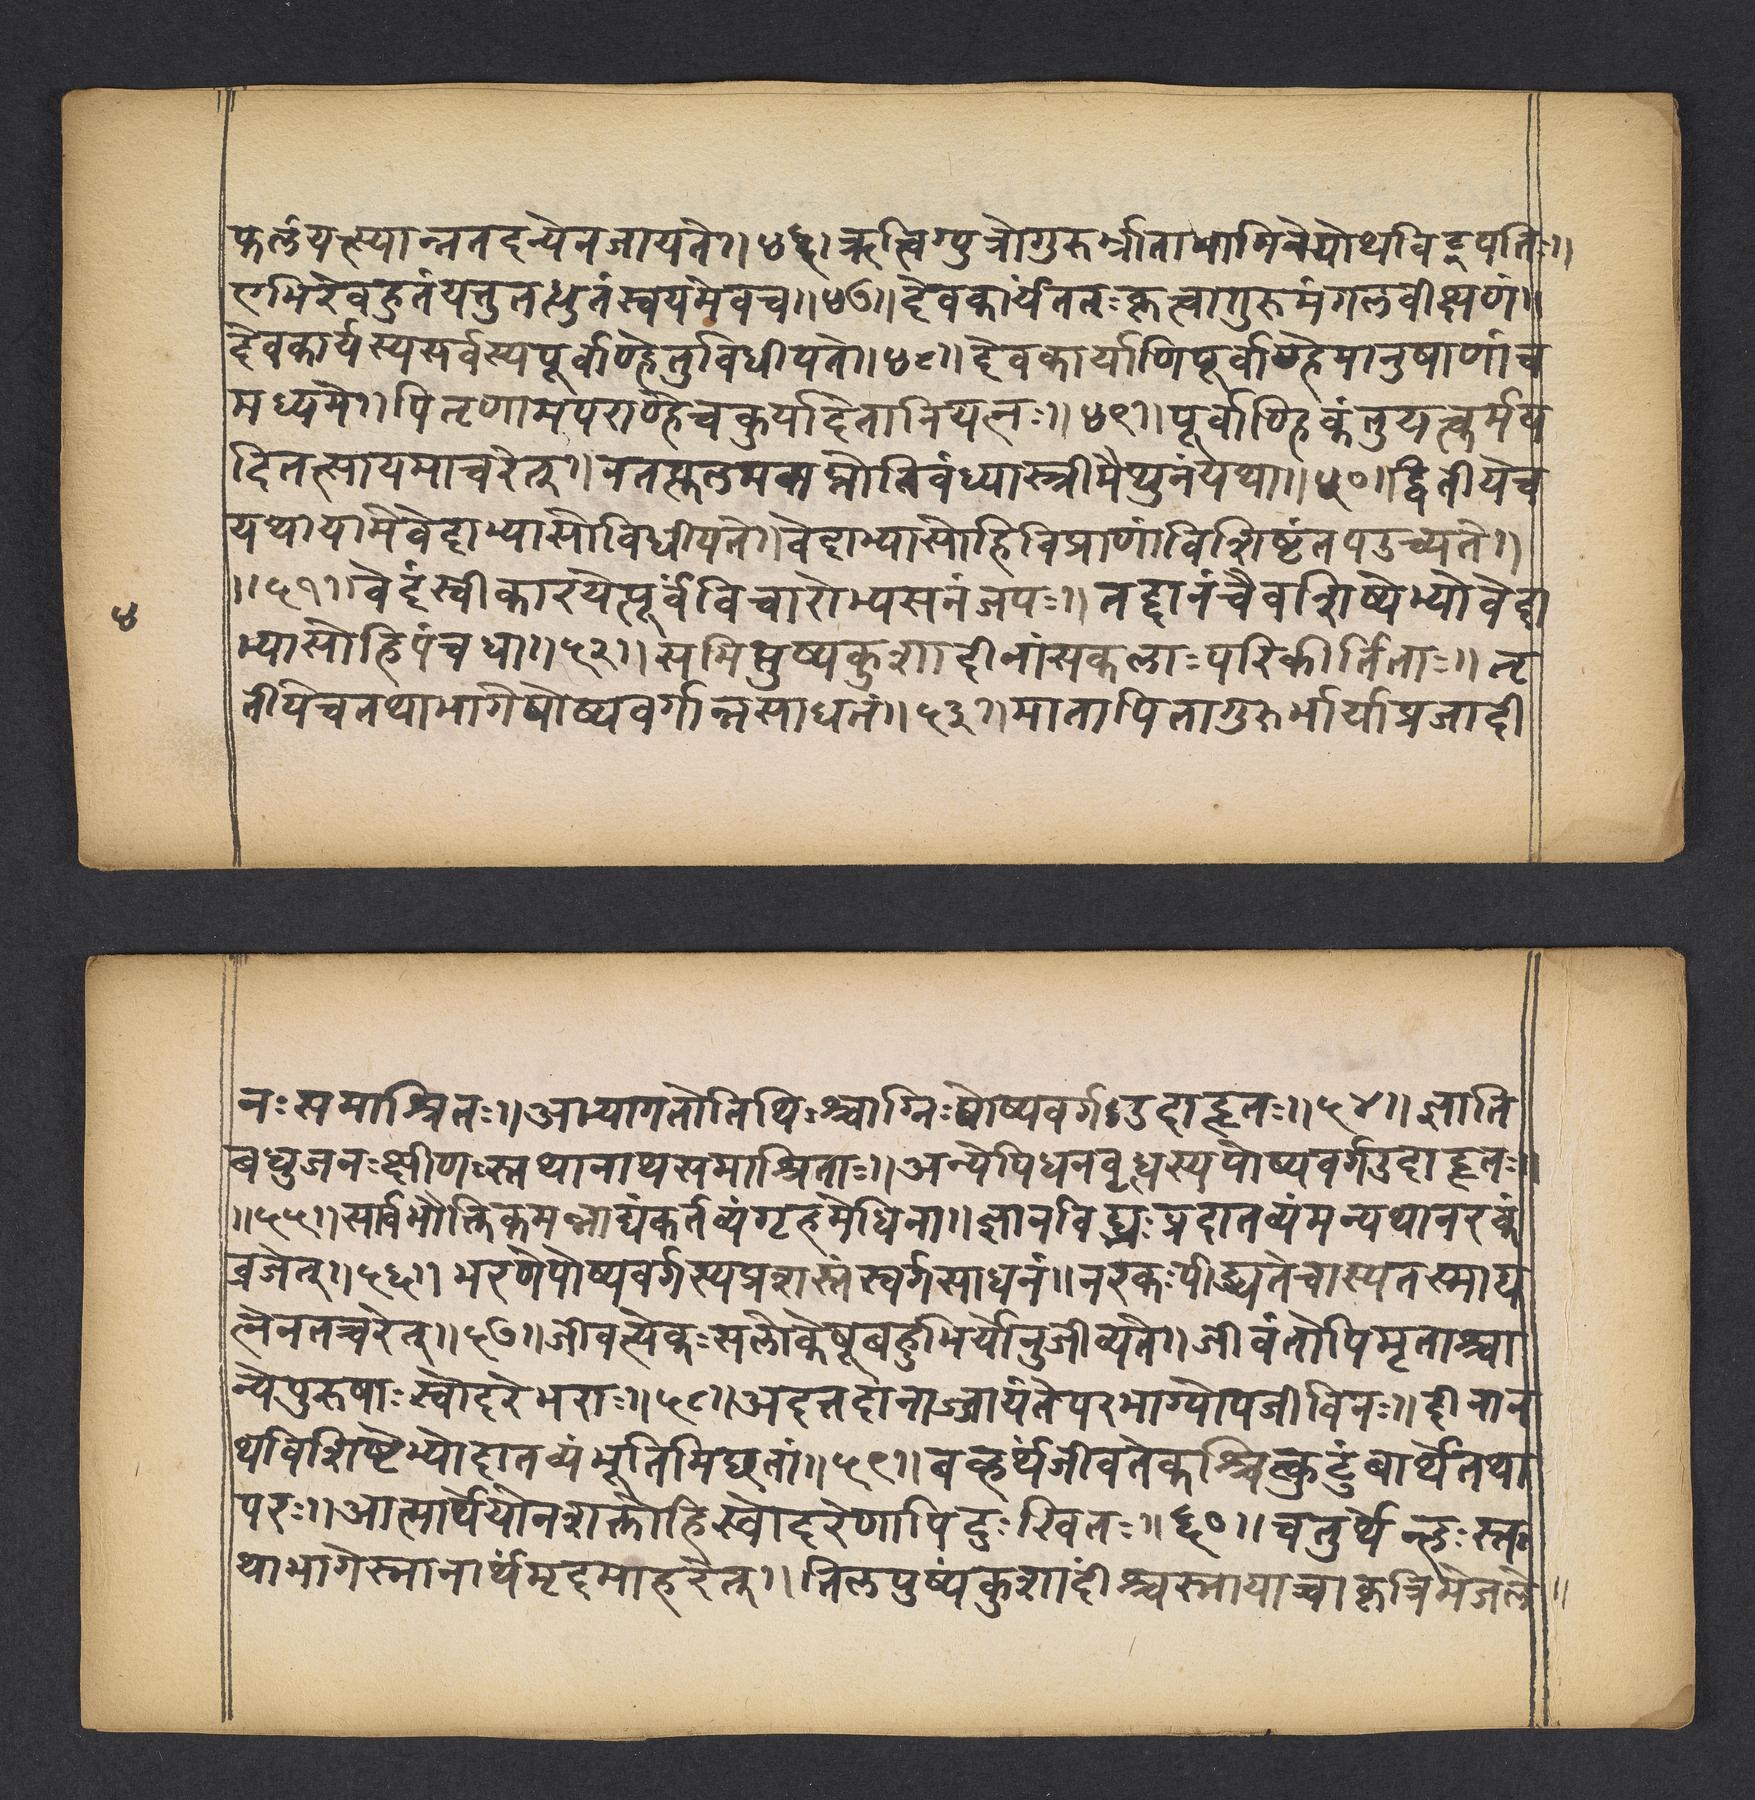 फलंयत्स्यान्नतदन्येनजायते।। ४६। ऋत्विग्पुत्रोगुरुर्भ्राताभागिनेयोथविट्पतिः।।
एभिरेवहुतंयत्तुतद्धुतंस्वयमेवच।। ४७।। देवकार्यंततःकृत्वागुरुमंगलवीक्षणं।।
देवकार्यस्यसर्वस्यपूर्वाण्हेतुविधीयते।। ४८।। देवकार्याणिपूर्वाण्हेमानुषाणांच
मध्यमे।। पितृणामपराण्हेचकुर्यादेतानियत्नः।। ४९।। पूर्वाण्हिकंतुयत्कर्मय
दितत्सायमाचरेत्।। नतत्फलमवाप्नोतिवंध्यास्त्रीमैथुनंयथा।। ५०।। द्वितीयेच
यथायामेवेदाभ्यासोविधीयते।। वेदाभ्यासोहिविप्राणांविशिष्टंतपउच्यते।।
।। ५१।। वेदंस्वीकारयेत्पूर्वंविचारोभ्यसनंजपः।। तद्दानंचैवशिष्येभ्योवेदा
४
भ्यासोहिपंचधा।। ५२।। समिपुष्यकुशादीनांसकलाःपरिकीर्तिताः।। तृ
तीयेचतथाभागेपोष्यवर्गान्नसाधनं।। ५३।। मातापितागुरुर्भार्याप्रजादी
नःसमाश्रितः।। अभ्यागतोतिथिःश्चाग्निःपोष्यवर्गउदाहृतः।। ५४।। ज्ञाति
बधुजनःक्षीणःस्तथानाथसमाश्रिताः।। अन्येपिधनवृधस्यपोष्यवर्गउदाहृतः।।
।। ५५।। सार्वभौक्तिकमन्नाद्यंकर्तव्यंगृहमेधिना।। ज्ञानविद्भ्यःप्रदातव्यंमन्यथानरकं
व्रजेत्।। ५६।। भरणंपोष्यवर्गस्यप्रशस्तंस्वर्गसाधनं।। नरकःपीड्यतेचास्यतस्माद्य
त्नेनतच्चरेत्।। ५७।। जीवत्येकःसलोकेषूबहुभिर्योनुजीव्यते।। जीवंतोपिमृताश्चा
न्येपुरुषाःस्वोदरेभराः।। ५८।। अदत्तदानाज्जायंतेपरभाग्योपजीविनः।। दीनान
थविशिष्टेभ्योदातव्यंभूतिमिछतां।। ५९।। बव्हर्थंजीवतेकश्चित्कुटुंबार्थेतथा
परः।। आत्मार्थेयोनशक्तोहिस्वोदरेणापिदुःखितः।। ६०।। चतुर्थेन्हःस्त
थाभागेस्नानार्थंमृदमाहरेत्।। तिलपुष्यंकुशादींश्चस्नायाच्चाकृत्रिमेजले।।